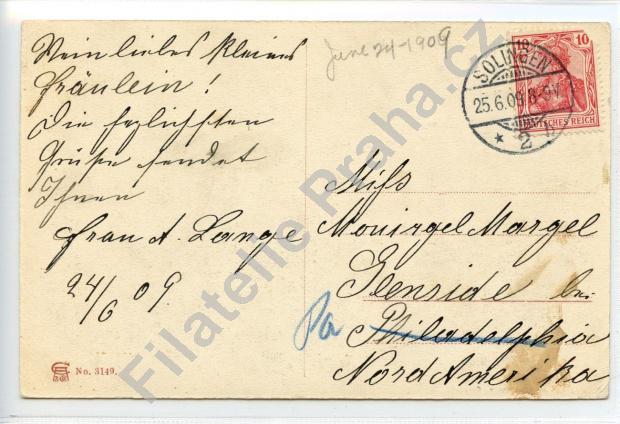 Mein liebes kleines
Fräulein!
Die herzlichsten
Grüße sendet
Ihnen
Frau A. Lange
24/6 09
June 24-1909
10 10
DEUTSCHES REICH
SOLINGEN
25.6.09 8-9V
* 2
Miss
Margel
Glenside bei
Pa
Philadelphia
Nord Amerika
No. 3149.
Filatelie Praha.cz